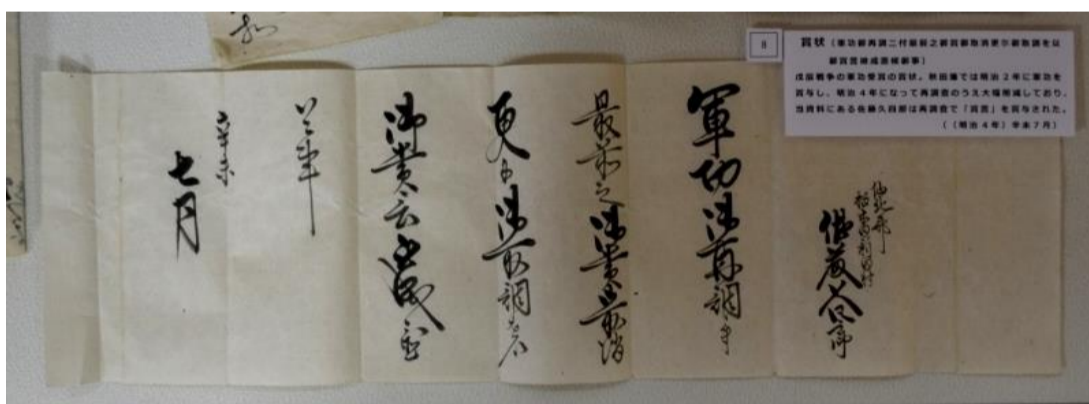 8
賞状（軍功御再調ニ付最前之御賞御取消更ニ御取調を以
御賞言被成置候御事）
戊辰戦争の軍功受賞の賞状。秋田藩では明治２年に軍功を
賞与し、明治４年になって再調査のうえ大幅削減しており、
当資料にある佐藤久四郎は再調査で「賞言」を賞与された。
（（明治４年）辛未７月）
仙北郡
佐藤
軍功御再調ニ付
最前之御賞御取消
更ニ御取調を以
御賞言被成置
辛未
七月